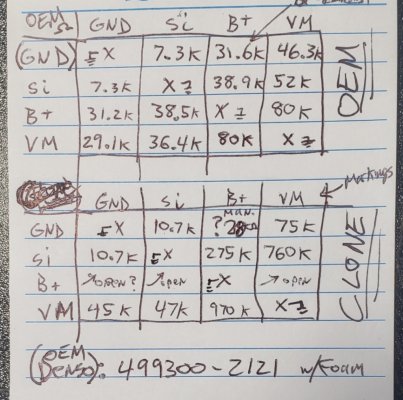 OEM GND Si B+ VM
(GND) X 7.3K 31.6K 46.3K
Si 7.3K X 38.9K 52K
B+ 31.2K 38.5K X 80K
VM 29.1K 36.4K 80K X
OEM
Markings
GND Si B+ VM
GND X 10.7K ? 75K
Si 10.7K X 275K 760K
B+ open? open X open
VM 45K 47K 970K X
CLONE
(OEM Denso): 499300-2121 w/Foam